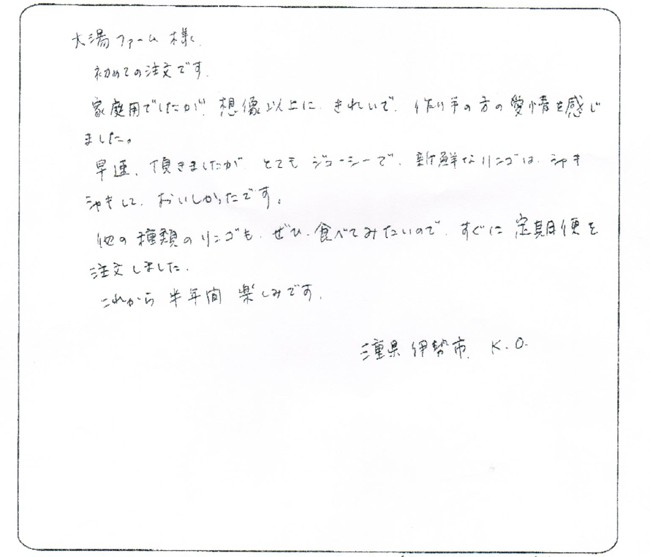 大湯ファーム 様
初めての注文です.
家庭用でしたが、想像以上に、きれいで、作り手の方の愛情を感じ
ました。
早速、頂きましたが とても ジューシーで、新鮮なリンゴは、シャキ
シャキして、おいしかったです。
他の種類のリンゴも、ぜひ、食べてみたいので、すぐに 定期便を
注文しました.
これから 半年間 楽しみです.
三重県 伊勢市、K.O.